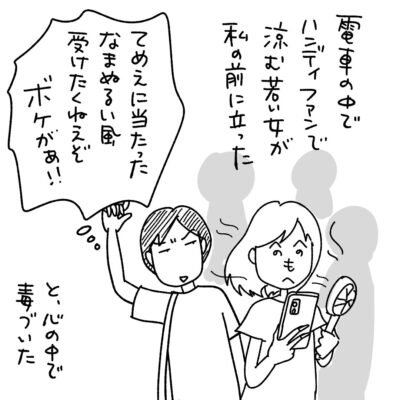 電車の中で
ハンディファンで
涼む若い女が
私の前に立った
てめえに当たった
なまぬるい風
受けたくねえぞ
ボケがぁ!!
と、心の中で
毒づいた